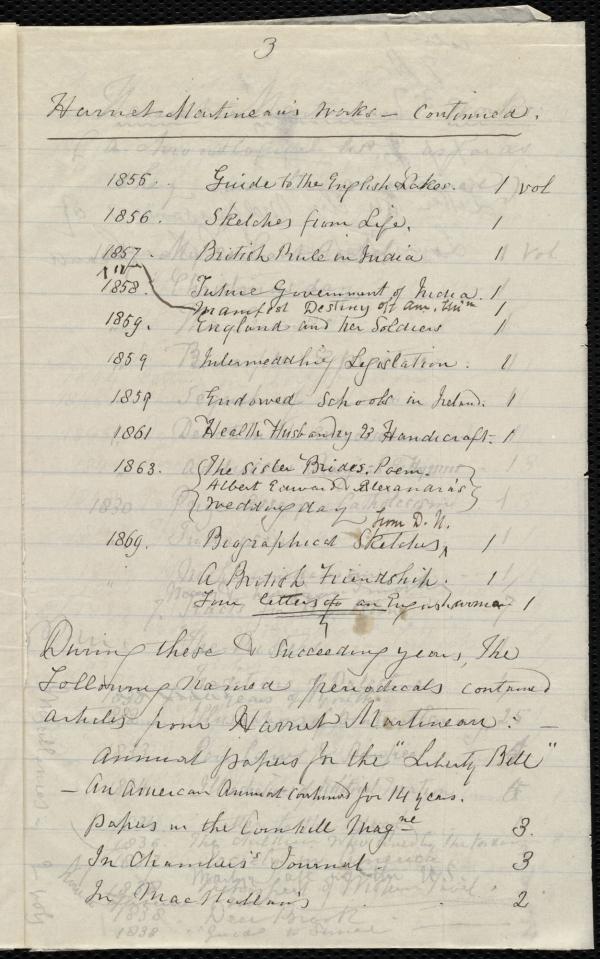 3
Harriet Martineau's Works — Continued.
1855. Guide to the English Lakes. 1 vol
1856. Sketches from Life. 1
1857. British Rule in India 1
1858. Future Government of India. 1
Manifest Destiny of Am. Un'n 1
1859. England and her Soldiers 1
1859 Intermeddling Legislation. 1
1859 Endowed Schools in Ireland. 1
1861 Health Husbandry & Handicraft. 1
1863. The Sister Brides. Poem,
Albert Edward & Alexandra's
Wedding day
from D. N.
1869. Biographical Sketches 1
A British Friendship. 1
Four letters of an Englishwoman 1
During these & Succeeding years, The
Following named periodicals contained
articles from Harriet Martineau: —
Annual papers for the "Liberty Bell"
— An American Annual continued for 14 years.
papers in the Cornhill Magne 3.
In Chambers's Journal 3
In MacMillan's 2